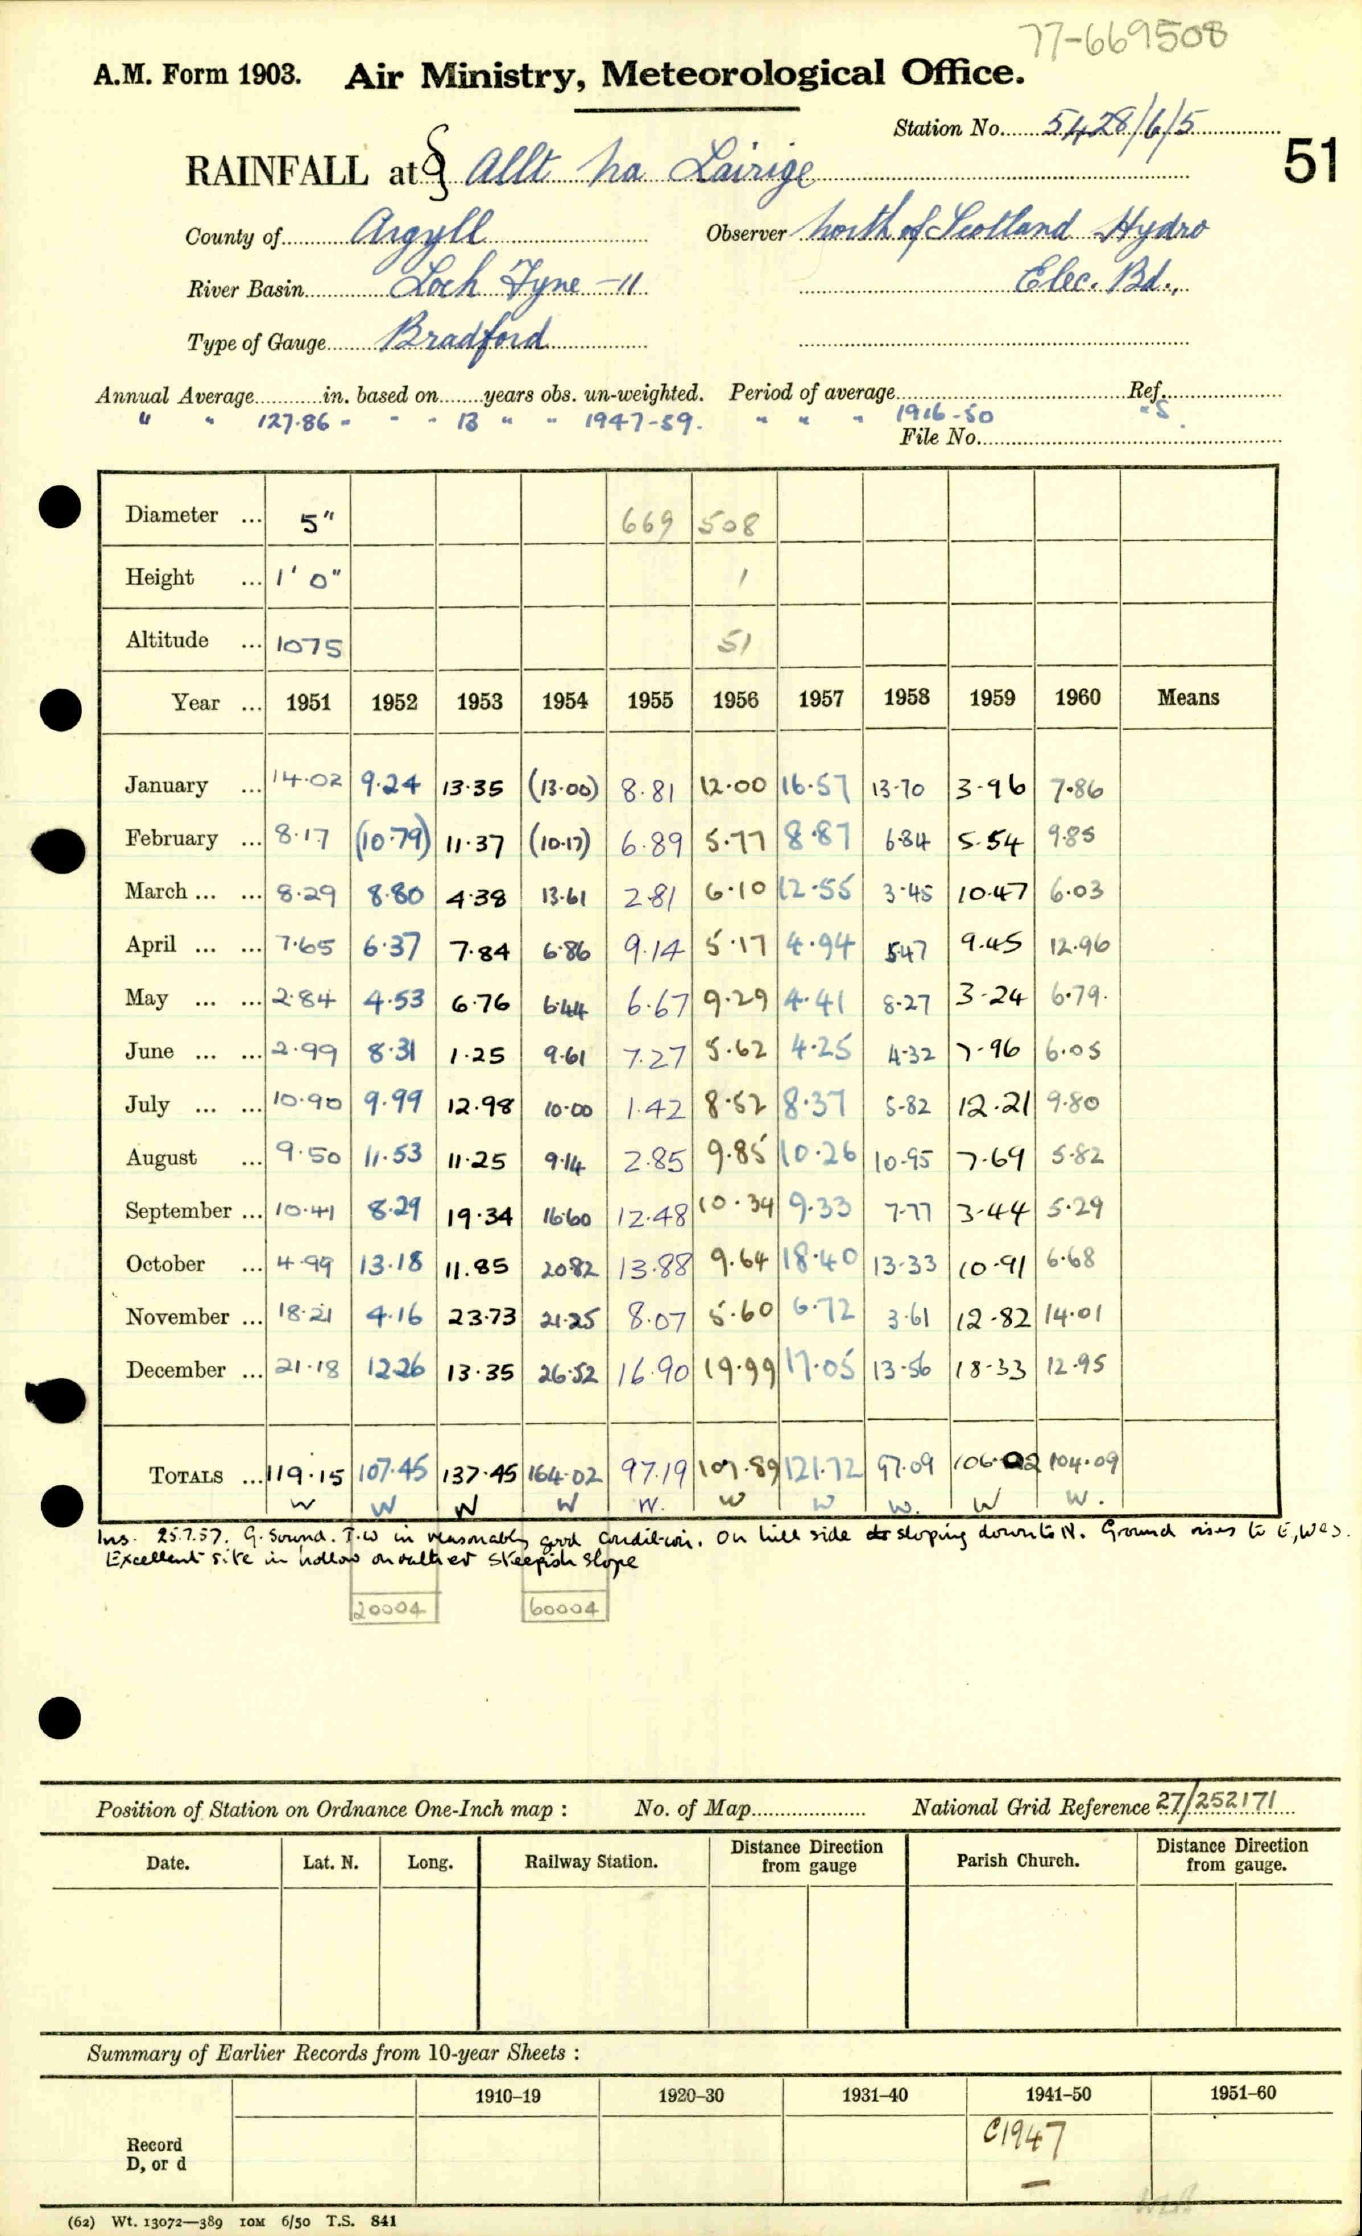 77-669508
A.M. Form 1903. Air Ministry, Meteorological Office.
Station No. 5428/6/5
51
RAINFALL at § Allt na Lairige
County of Argyll Observer North of Scotland Hydro
River Basin Loch Fyne -11 Elec. Bd.,
Type of Gauge Bradford
Annual Average in. based on years obs. un-weighted. Period of average Ref.
" " 127.86 " " " 13 " " 1947-59. " " " 1916-50 "S.
File No.
Diameter ... 5" 669 508
Height ... 1' 0" 1
Altitude ... 1075 51
Year ... 1951 1952 1953 1954 1955 1956 1957 1958 1959 1960 Means
January ... 14.02 9.24 13.35 (13.00) 8.81 12.00 16.57 13.70 3.96 7.86
February ... 8.17 (10.79) 11.37 (10.17) 6.89 5.77 8.87 6.84 5.54 9.85
March ... ... 8.29 8.80 4.38 13.61 2.81 6.10 12.55 3.45 10.47 6.03
April ... ... 7.65 6.37 7.84 6.86 9.14 5.17 4.94 5.47 9.45 12.96
May ... ... 2.84 4.53 6.76 6.44 6.67 9.29 4.41 8.27 3.24 6.79.
June ... ... 2.99 8.31 1.25 9.61 7.27 5.62 4.25 4.32 7.96 6.05
July ... ... 10.90 9.99 12.98 10.00 1.42 8.52 8.37 5.82 12.21 9.80
August ... 9.50 11.53 11.25 9.14 2.85 9.85 10.26 10.95 7.69 5.82
September ... 10.41 8.29 19.34 16.60 12.48 10.34 9.33 7.77 3.44 5.29
October ... 4.99 13.18 11.85 20.82 13.88 9.64 18.40 13.33 10.91 6.68
November ... 18.21 4.16 23.73 21.25 8.07 5.60 6.72 3.61 12.82 14.01
December ... 21.18 12.26 13.35 26.52 16.90 19.99 17.05 13.56 18.33 12.95
TOTALS ... 119.15 107.45 137.45 164.02 97.19 107.89 121.72 97.09 106.02 104.09
W W W W W. W W W. W W.
Ins. 25.7.57. G. Sound. I.W in reasonably good condition. On hill side sloping down to N. Ground rises to E, W & S.
Excellent site in hollow on rather steepish slope
20004 60004
Position of Station on Ordnance One-Inch map : No. of Map National Grid Reference 27/252171
Date. Lat. N. Long. Railway Station. Distance from gauge Direction Parish Church. Distance from gauge. Direction
Summary of Earlier Records from 10-year Sheets :
1910-19 1920-30 1931-40 1941-50 1951-60
Record D, or d C1947 –
(62) Wt. 13072—389 10M 6/50 T.S. 841